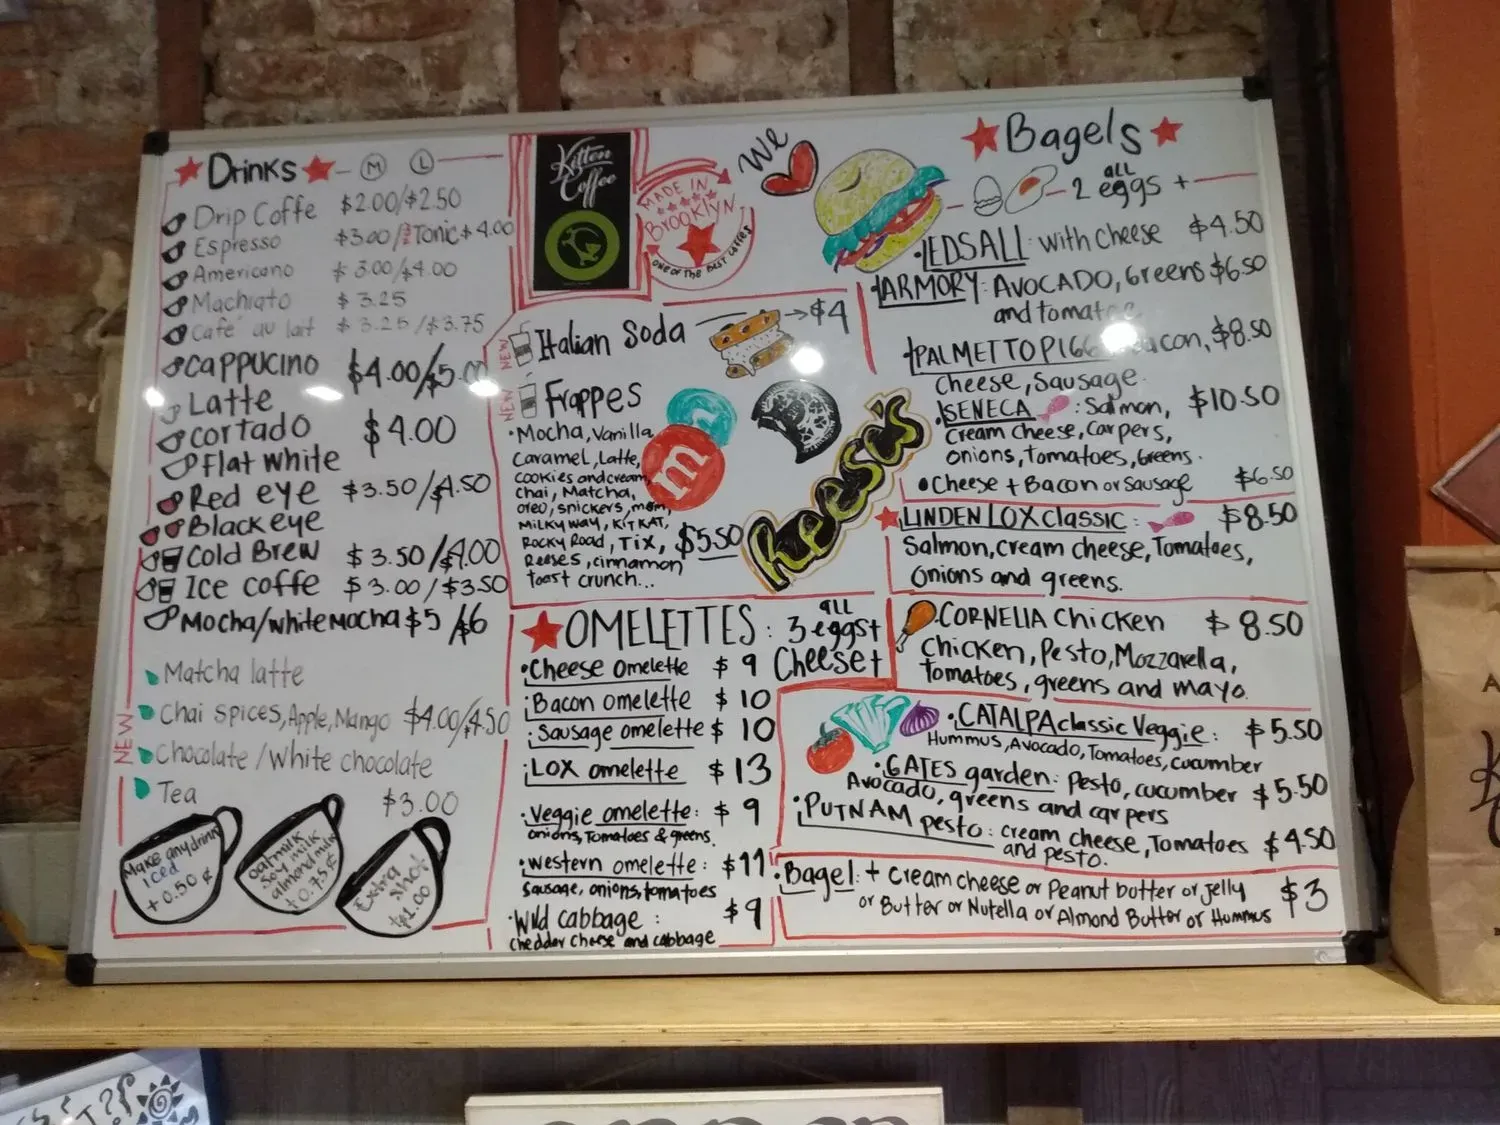 Drinks M L
Drip Coffe $2.00/$2.50
Espresso $3.00/Tonic $4.00
Americano $3.00/$4.00
Machiato $3.25
Cafe' au lait $3.25/$3.75
Cappucino $4.00/$5.00
Latte
Cortado $4.00
Flat white
Red eye $3.50/$4.50
Black eye
Cold Brew $3.50/$4.00
Ice coffe $3.00/$3.50
Mocha/white Mocha $5/$6
NEW
Matcha latte
Chai spices, Apple, Mango $4.00/4.50
Chocolate/White chocolate
Tea $3.00
Make any drink
iced
+0.50¢
oatmilk
Soy milk
almond milk
+0.75¢
Extra
shot
+$1.00
Kitten
Coffee
MADE IN
BrooklYN
ONE OF THE BEST COFFEES
We
NEW
Italian Soda → $4
NEW
Frappes
• Mocha, Vanilla
Caramel, Latte,
cookies and cream,
Chai, Matcha,
oreo, snickers, m&m,
MILKY WAY, KIT KAT,
Rocky Road, Tix, $5.50
Reeses, cinnamon
toast crunch...
m
m
Reese's
OMELETTES: all 3 eggs+
Cheese+
• Cheese omelette $9
• Bacon omelette $10
• Sausage omelette $10
• LOX omelette $13
• Veggie omelette: $9
onions, Tomatoes & greens.
• Western omelette: $11
Sausage, onions, tomatoes
• Wild cabbage: $9
chedder cheese and cabbage
Bagels
all
2 eggs +
• LEDSALL: with cheese $4.50
• ARMORY: AVOCADO, Greens $6.50
and tomatoe
• PALMETTO PIGG: Bacon, $8.50
Cheese, Sausage.
• SENECA: Salmon, $10.50
Cream cheese, Carpers,
onions, Tomatoes, Greens.
• Cheese + Bacon or Sausage $6.50
LINDEN LOX classic: $8.50
Salmon, cream cheese, Tomatoes,
Onions and greens.
• CORNELIA Chicken $8.50
Chicken, Pesto, Mozzarella,
tomatoes, greens and mayo.
• CATALPA classic Veggie: $5.50
Hummus, Avocado, Tomatoes, cucumber
• GATES garden: Pesto, cucumber $5.50
Avocado, greens and carpers
• PUTNAM pesto: cream cheese, Tomatoes $4.50
and pesto.
• Bagel: + Cream cheese or Peanut butter or jelly $3
or Butter or Nutella or Almond Butter or Hummus